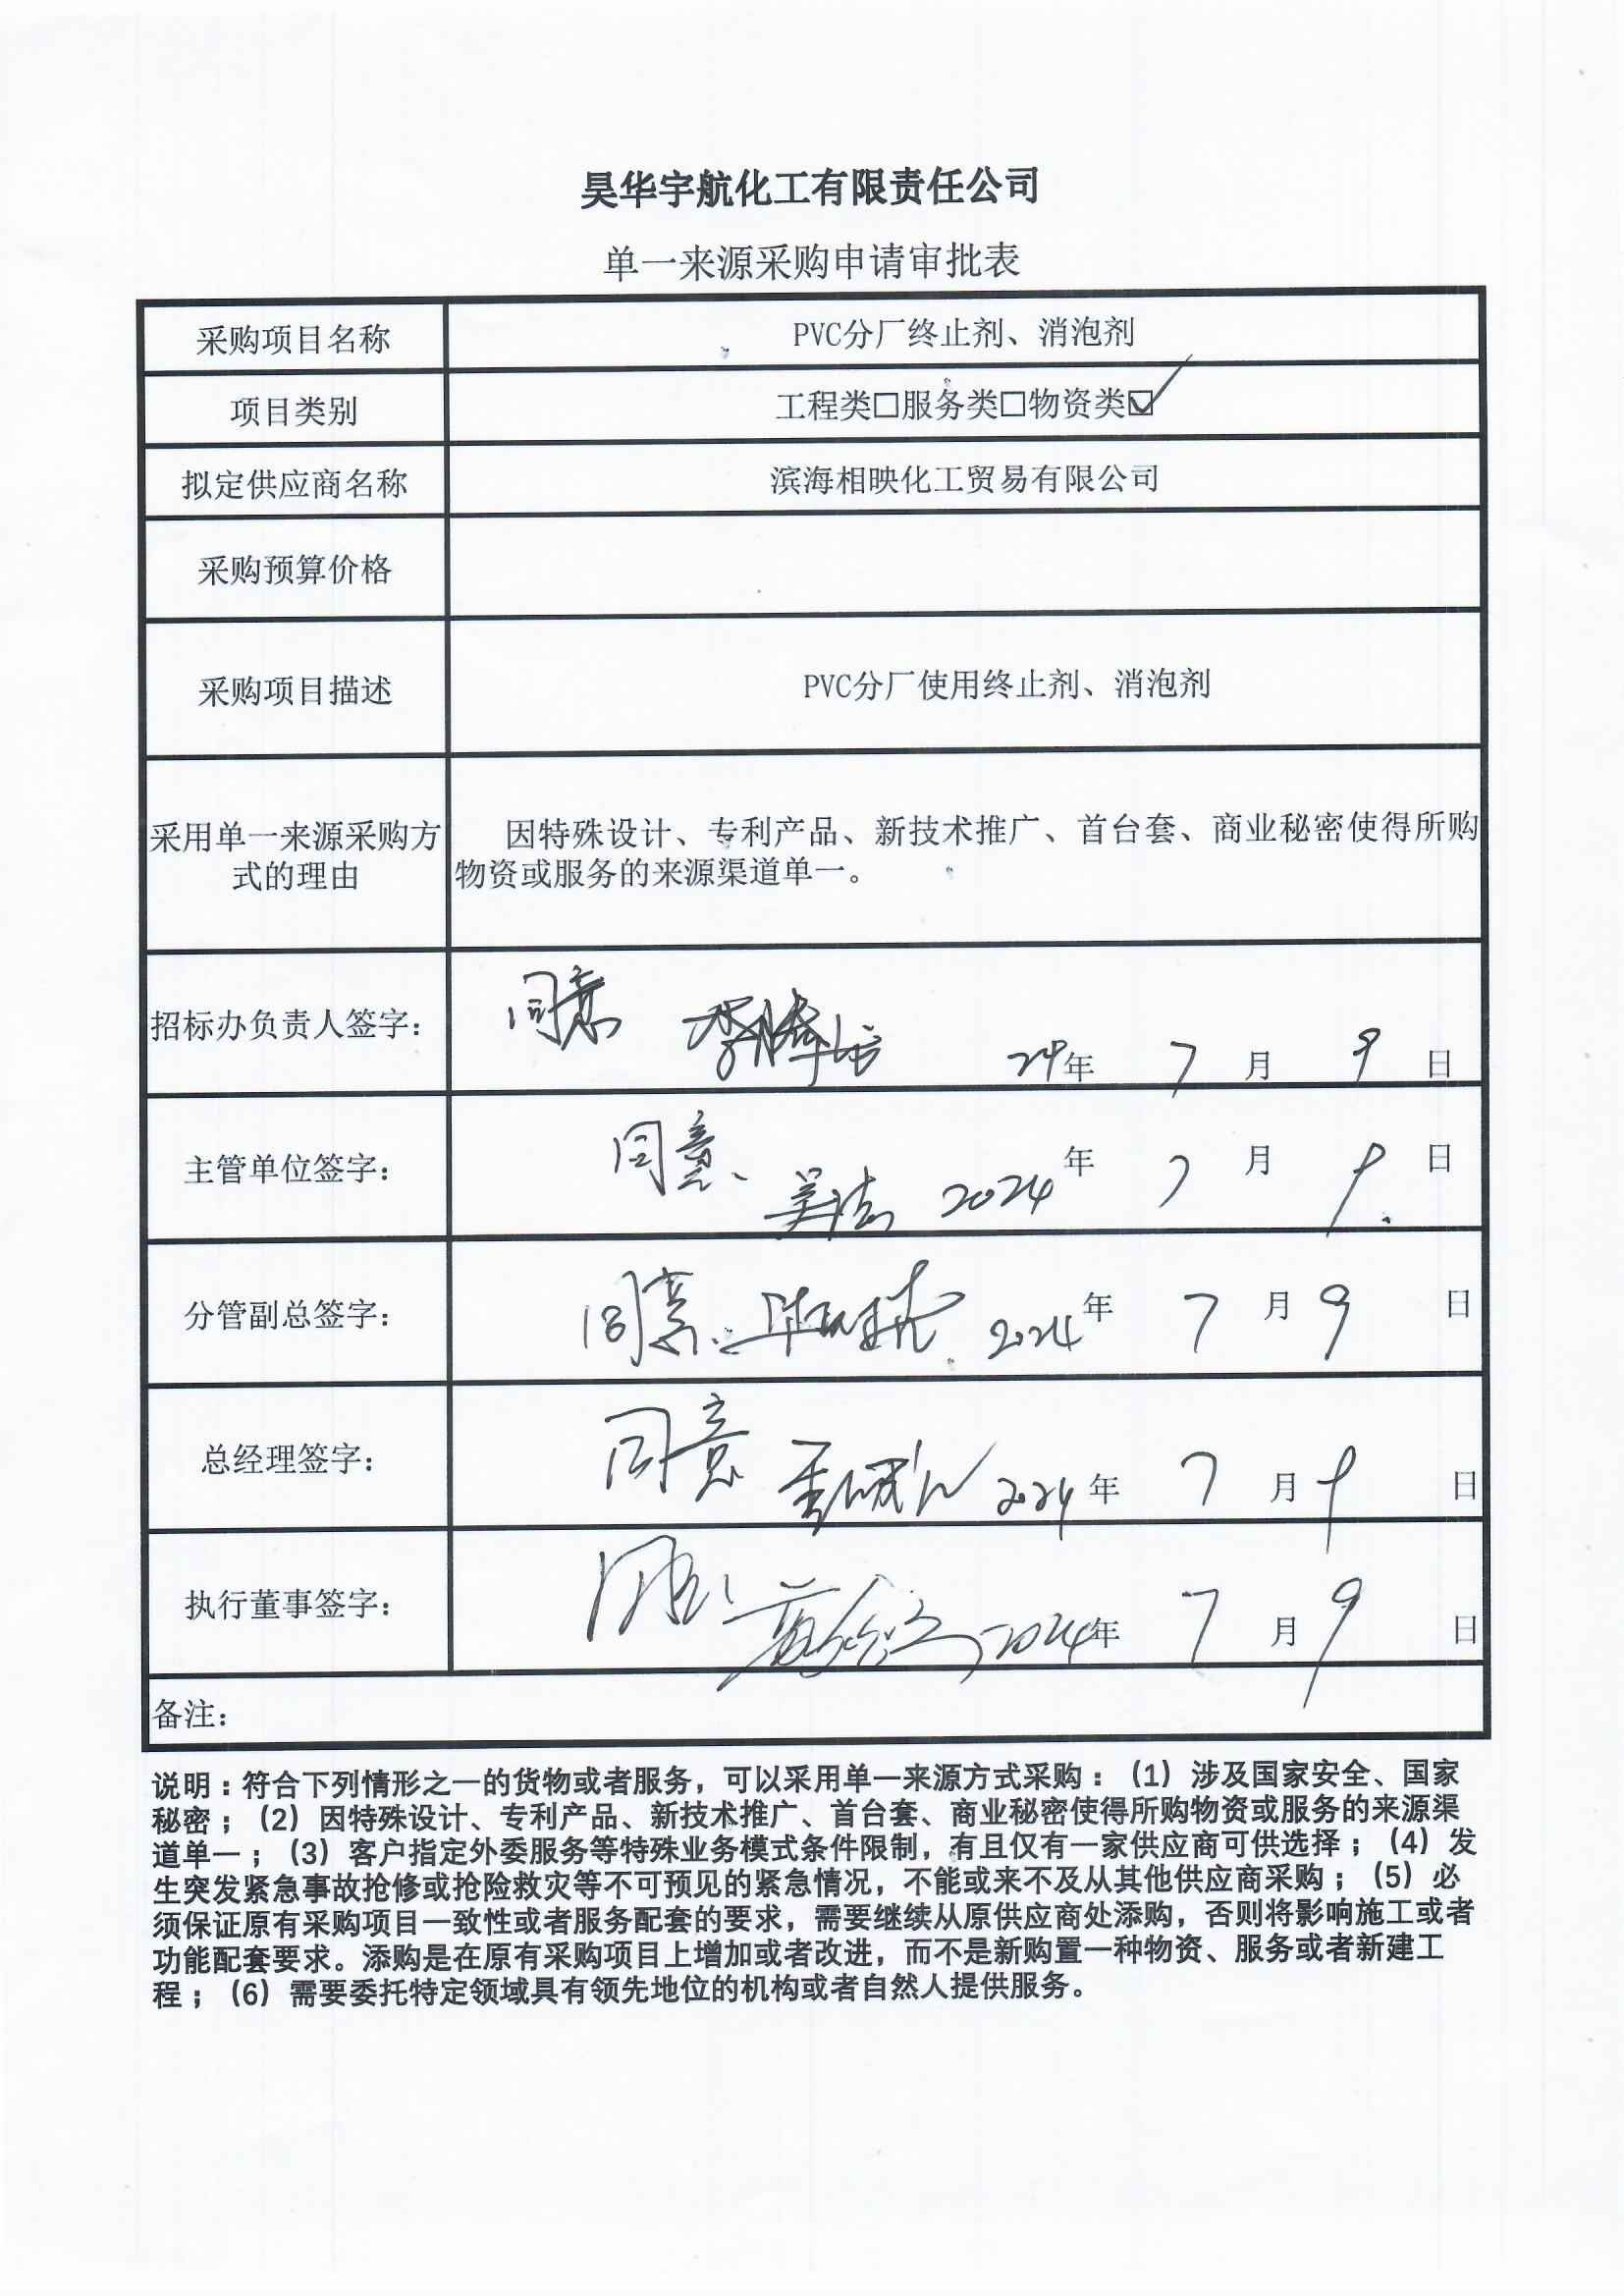 昊华宇航化工有限责任公司
单一来源采购申请审批表
采购项目名称 PVC分厂终止剂、消泡剂
项目类别 工程类□服务类□物资类☑
拟定供应商名称 滨海相映化工贸易有限公司
采购预算价格
采购项目描述 PVC分厂使用终止剂、消泡剂
采用单一来源采购方
式的理由
因特殊设计、专利产品、新技术推广、首台套、商业秘密使得所购
物资或服务的来源渠道单一。
招标办负责人签字: 同意 24年 7 月 9 日
主管单位签字: 同意、 2024年 7 月 9 日
分管副总签字: 同意. 2024年 7 月 9 日
总经理签字: 同意 2024年 7 月 9 日
执行董事签字: 同意 2024年 7 月 9 日
备注:
说明:符合下列情形之一的货物或者服务，可以采用单一来源方式采购:(1)涉及国家安全、国家
秘密;(2)因特殊设计、专利产品、新技术推广、首台套、商业秘密使得所购物资或服务的来源渠
道单一;(3)客户指定外委服务等特殊业务模式条件限制，有且仅有一家供应商可供选择;(4)发
生突发紧急事故抢修或抢险救灾等不可预见的紧急情况，不能或来不及从其他供应商采购;(5)必
须保证原有采购项目一致性或者服务配套的要求，需要继续从原供应商处添购，否则将影响施工或者
功能配套要求。添购是在原有采购项目上增加或者改进，而不是新购置一种物资、服务或者新建工
程;(6)需要委托特定领域具有领先地位的机构或者自然人提供服务。